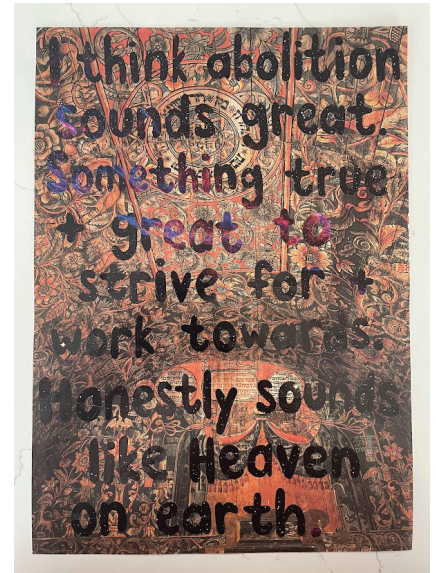 I think abolition
sounds great.
Something true
+ great to
strive for +
work towards.
Honestly sounds
like Heaven
on earth.